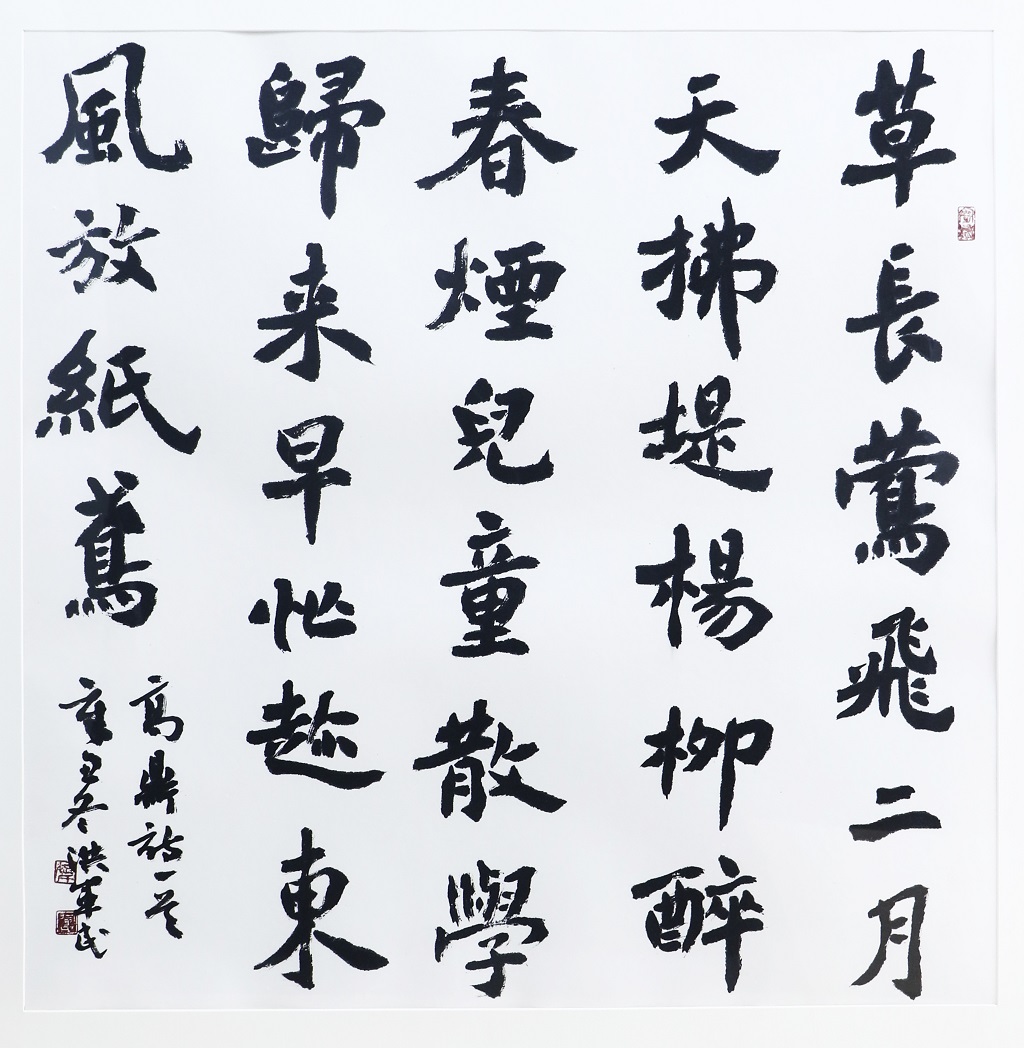 草長鶯飛二月
天拂堤楊柳醉
春煙兒童散學
歸来早忙趁東
風放紙鳶
高鼎詩一首
辛丑冬洪軍民